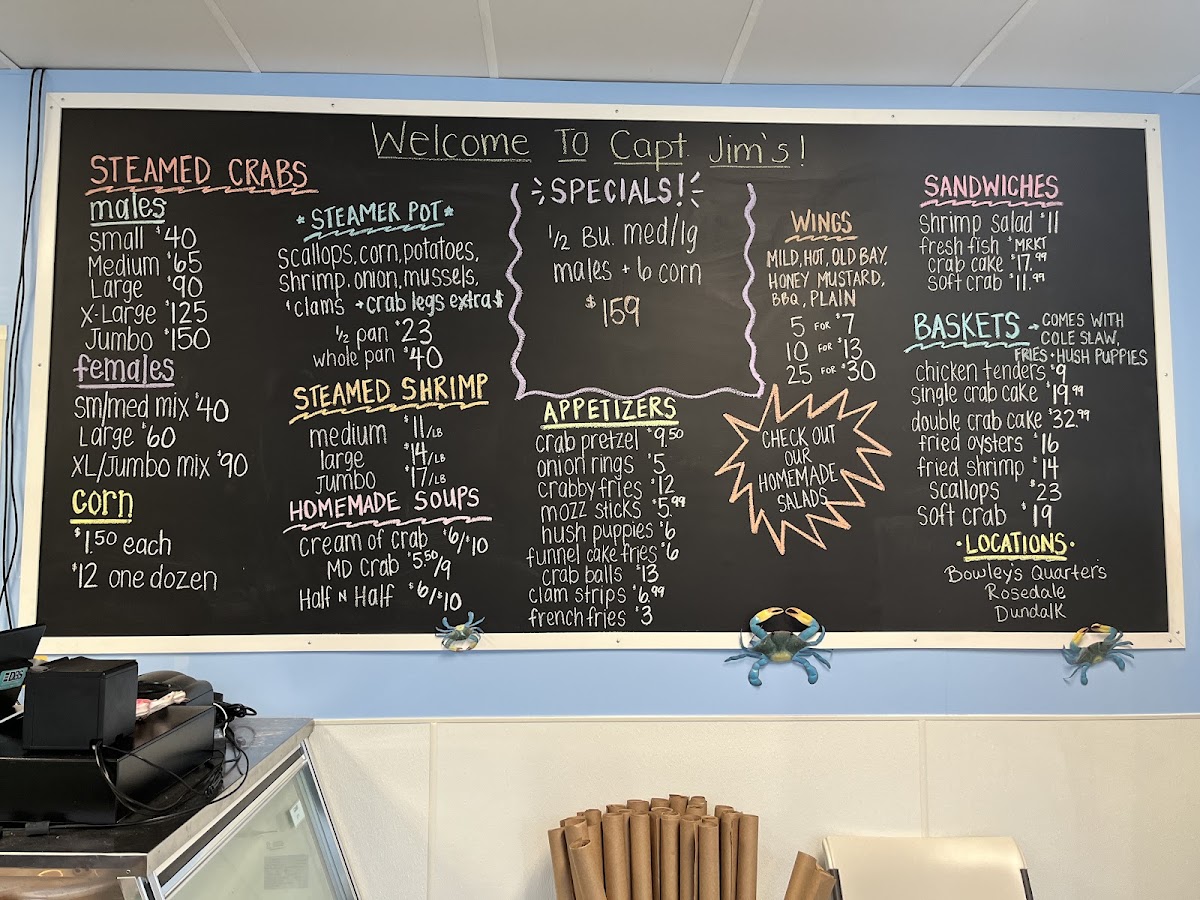 Welcome To Capt. Jim's!
STEAMED CRABS
males
small $40
Medium $65
Large $90
X-Large $125
Jumbo $150
females
sm/med mix $40
Large $60
XL/Jumbo mix $90
corn
$1.50 each
$12 one dozen
*STEAMER POT*
scallops, corn, potatoes,
shrimp, onion, mussels,
+ clams → crab legs extra $
1/2 pan $23
whole pan $40
STEAMED SHRIMP
medium $11/LB
large $14/LB
Jumbo $17/LB
HOMEMADE SOUPS
cream of crab $6/$10
MD Crab $5.50/9
Half N Half $6/$10
SPECIALS!
1/2 Bu. med/lg
males + 6 corn
$159
APPETIZERS
crab pretzel $9.50
onion rings $5
crabby fries $12
mozz sticks $5.99
hush puppies $6
funnel cake fries $6
crab balls $13
clam strips $6.99
french fries $3
WINGS
MILD, HOT, OLD BAY,
HONEY MUSTARD,
BBQ, PLAIN
5 FOR $7
10 FOR $13
25 FOR $30
CHECK OUT
OUR
HOMEMADE
SALADS
SANDWICHES
shrimp salad $11
fresh fish $MRKT
crab cake $17.99
soft crab $11.99
BASKETS → COMES WITH
COLE SLAW,
FRIES + HUSH PUPPIES
chicken tenders $9
single crab cake $19.99
double crab cake $32.99
fried oysters $16
fried shrimp $14
scallops $23
soft crab $19
·LOCATIONS·
Bowley's Quarters
Rosedale
Dundalk